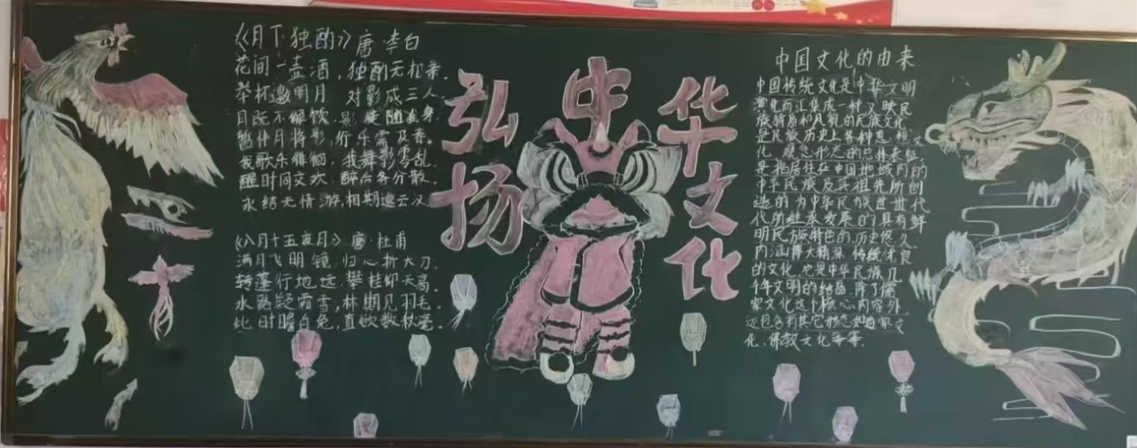 《月下独酌》唐·李白
花间一壶酒，独酌无相亲.
举杯邀明月 对影成三人.
月既不解饮，影徒随我身.
暂伴月将影，行乐需及春.
我歌月徘徊，我舞影零乱
醒时同交欢，醉后各分散.
永结无情游，相期邈云汉.
《八月十五夜月》唐·杜甫
满月飞明镜，归心折大刀.
转蓬行地远，攀桂仰天高.
水路疑霜雪，林栖见羽毛.
此时瞻白兔，直欲数秋毫.
弘扬
中
华文化
中国文化的由来
中国传统文化是中华文明
演化而汇集成一种反映民
族特质和风貌的民族文化
是民族历史上各种思想文
化、观念形态的总体表征
是指居住在中国地域内的
中华民族及其祖先所创
造的为中华民族世世代
代所继承发展的具有鲜
明民族特色的历史悠久
内涵博大精深 传统优良
的文化，它是中华民族几
千年文明的结晶 除了儒
家文化这个核心内容外，
还包含有其它形态如道家文
化、佛教文化等等.